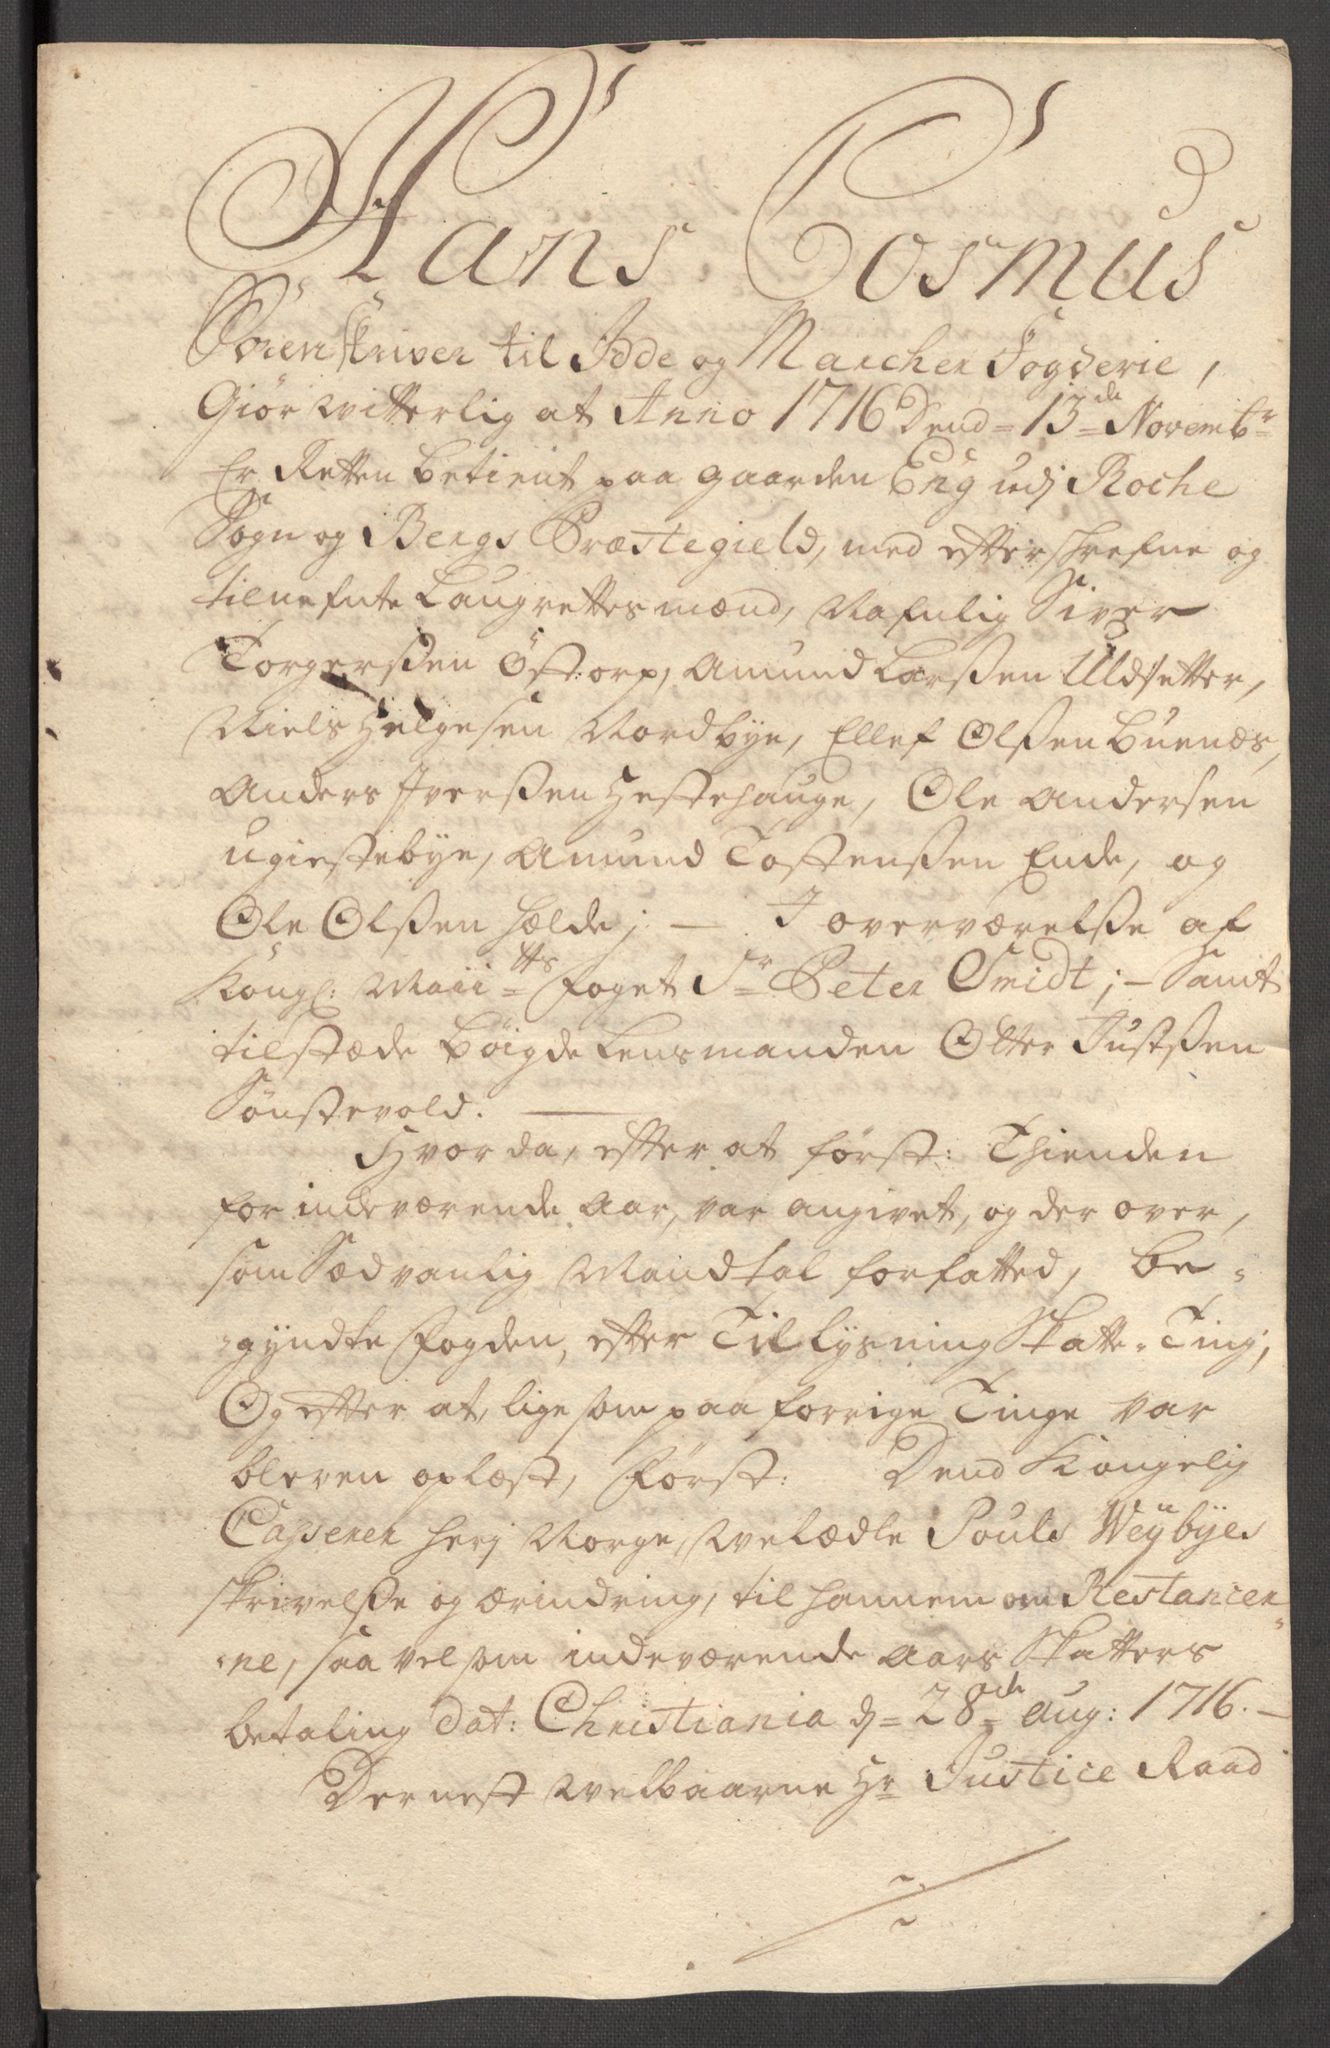 Hans Cosmus
Sorenskriver til Idde og Marcher Fogderie,
Giør Witterlig at Anno 1716 Dend = 13de Novembr
Er Retten betient paa gaarden Eng udj Roche
Sogn og Bergs Præstegield, med efterschrefne og
tilnefnte Laugrettesmænd, Nafnlig Siver
Torgerssen Östorp, Amund Larssen Uldsetter,
Niels Helgesen Nordbye, Ellef Olssen Buenæs,
Anders Iverssen Hestehauge, Ole Andersen
Ugiestebye, Amund Tostenssen Ende, og
Ole Olssen Hælde; — I overværelsse af
Kongl: Maiitts Foget Sr Peter Smidt; — Samt
tilstæde Böigde Lensmanden Otter Justssen
Sönstevold. —
Hvor da, efter at först: Thienden
for indeværende Aar, var angivet, og der over,
som Sædvanlig Mandtal forfatted, be=
=gyndte Fogden, efter Tillysning Skatte=Ting,
Og efter at, lige som paa forrige Tinge var
bleven oplæst, Först: Dend Kongelig
Casserer herj Norge, Welædle Pouls Weÿbyes
skrivelsse og erindring, til hannem om Restancer=
=ne, saa vel som indeværende Aars Skatters
betaling dat: Christiania d = 28de Aug: 1716. —
Dernest Welbaarne Hr Justice Raad